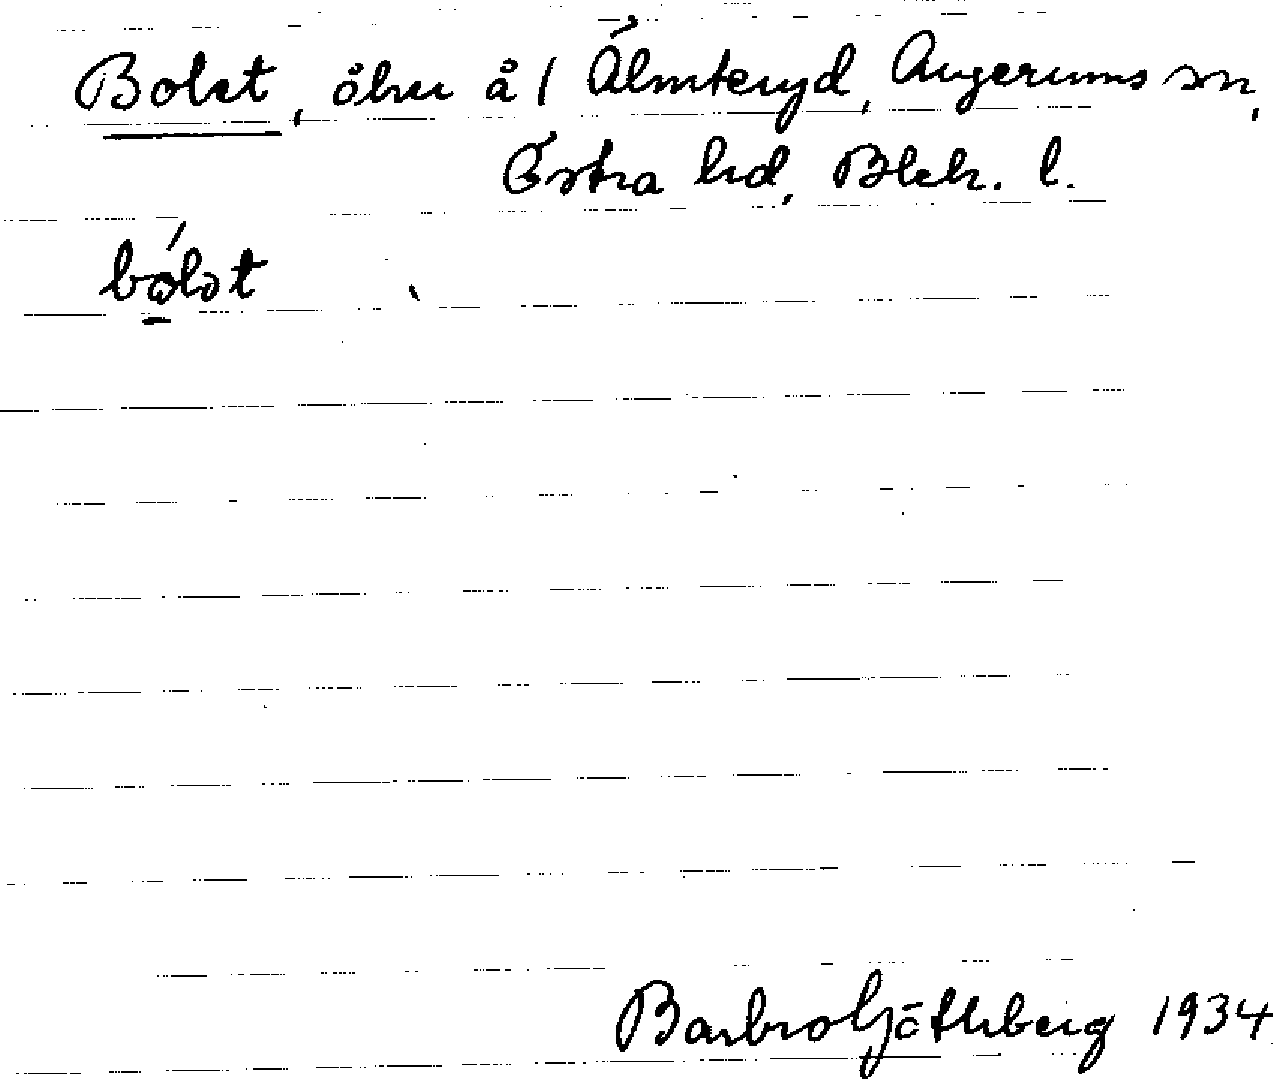 Bolet, åker å 1 Älmteryd, Augerums sn,
Östra hd, Blek. l.
bólət
Barbro Götherberg 1934